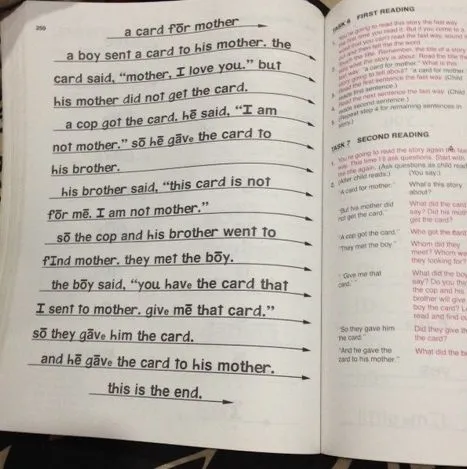 250
a card fōr mother
a boy sent a card to his mother. the
card said, “mother, I love you.” but
his mother did not get the card.
a cop got the card. hē said, “I am
not mother.” sō hē gāve the card to
his brother.
his brother said, “this card is not
fōr mē. I am not mother.”
sō the cop and his brother went to
fInd mother. they met the bōy.
the bōy said, “you have the card that
I sent to mother. give mē that card.”
sō they gāve him the card.
and hē gāve the card to his mother.
this is the end.
TASK 6 FIRST READING
TASK 7 SECOND READING
1. You're going to read the story again
way. This time I'll ask questions. Start with
the title again. (Ask questions as child
2. (After child reads:) (You say:)
“A card for mother.” What's this story
about?
“But his mother did What did the card
not get the card.” say? Did his
get the card?
“A cop got the card.” Who got the card
“They met the boy.” Whom did they
meet? Whom
they looking for?
“Give me that What did the
card.” say? Do you
the cop and his
brother will give
boy the card?
read and find
“So they gave him Did they give
the card.” the card?
“And he gave the What did the
card to his mother.”